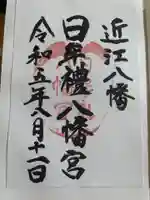 近江八幡
日牟禮八幡宮
令和五年八月十一日